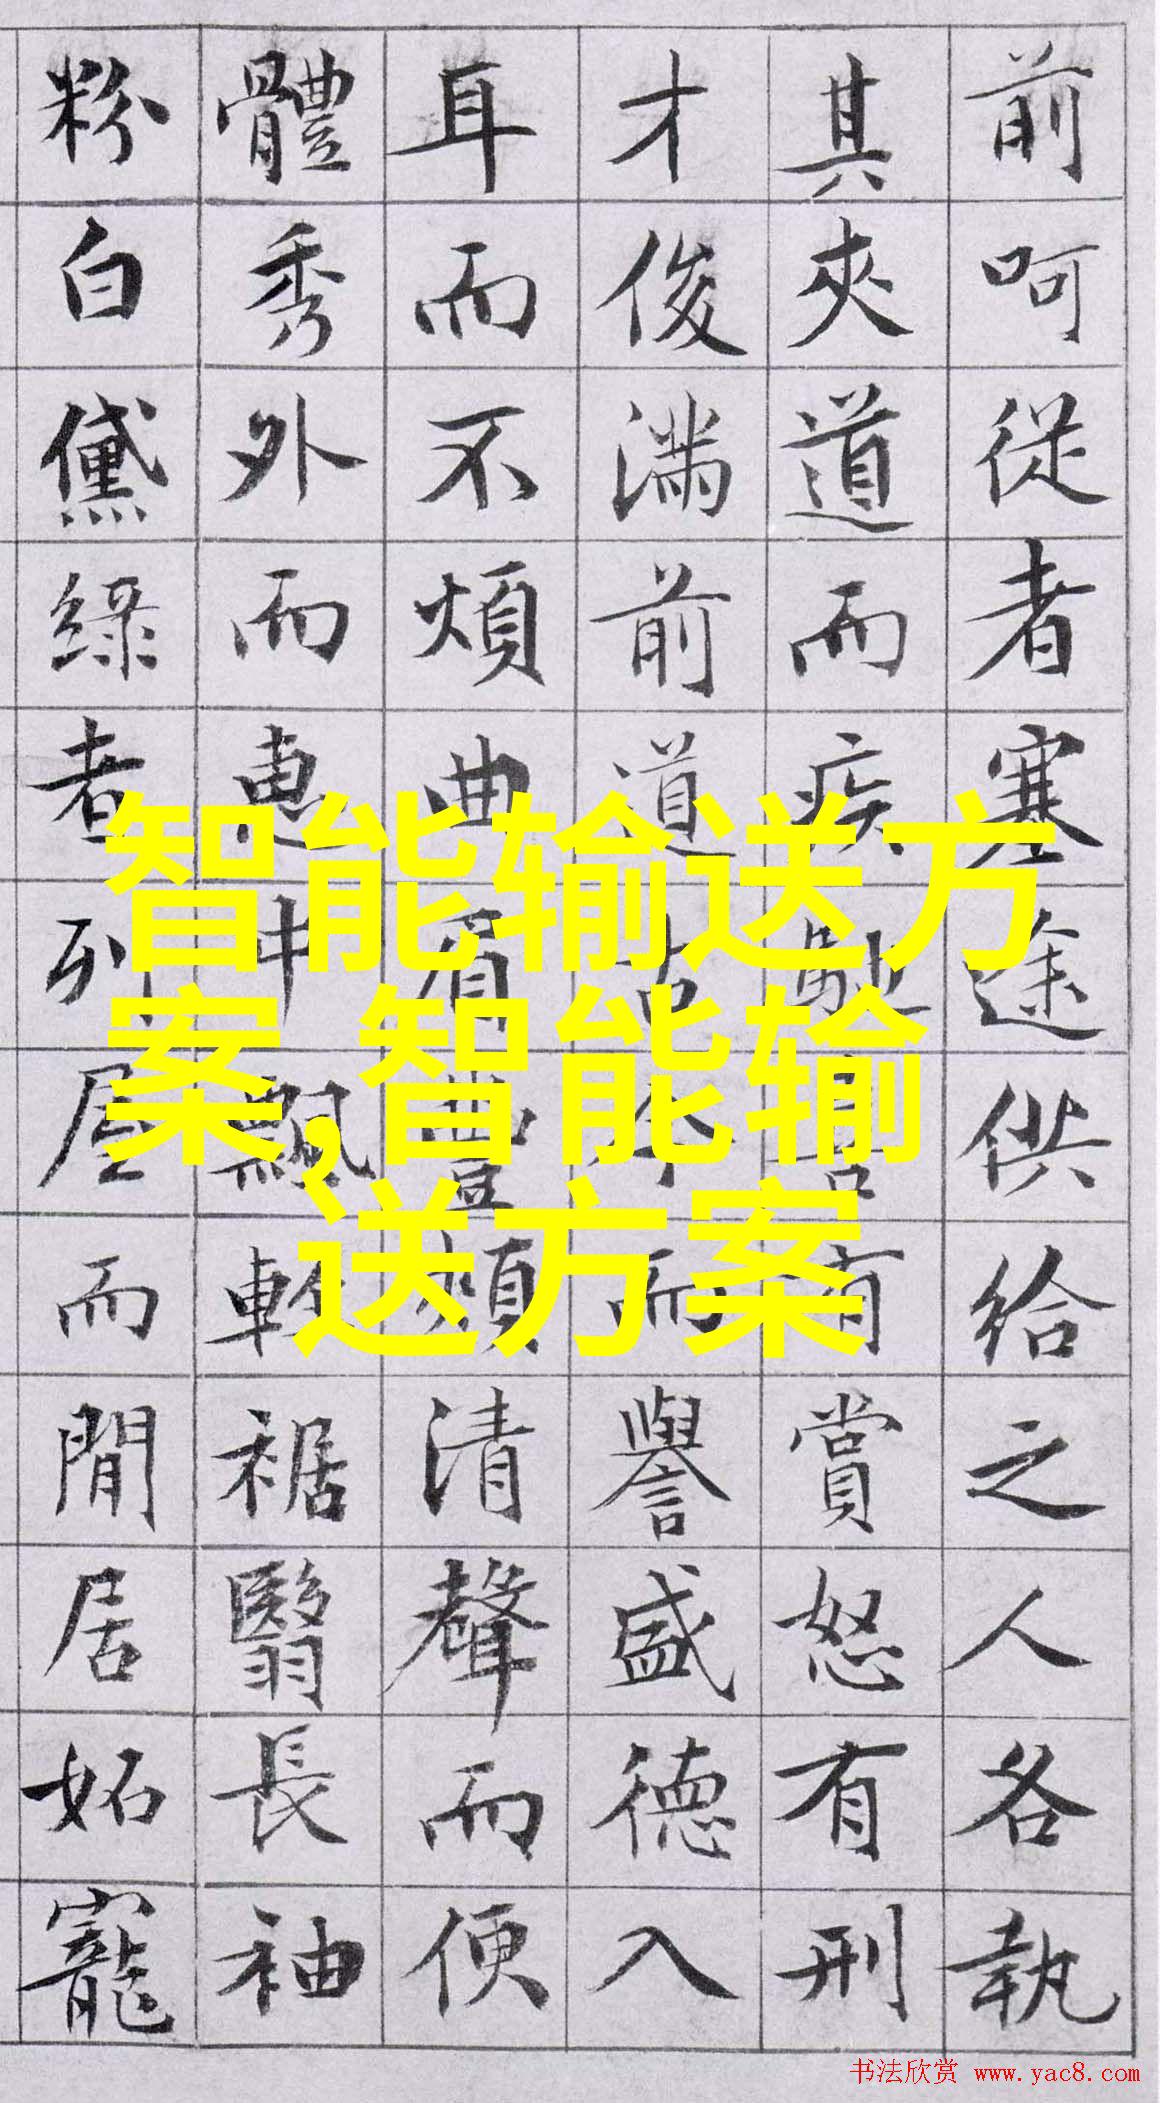 前呵從者塞途供給之人各執
其夾道而疾馳喜有賞怒有刑
才俊滿前道古今而譽盛德入
耳而不煩曲眉豐頰清聲而便
體秀外而惠中飄輕裾翳長袖
粉白黛綠者列屋而閒居妬寵
智能输送方
案,智能输
送方案
书法欣赏 www.yac8.com